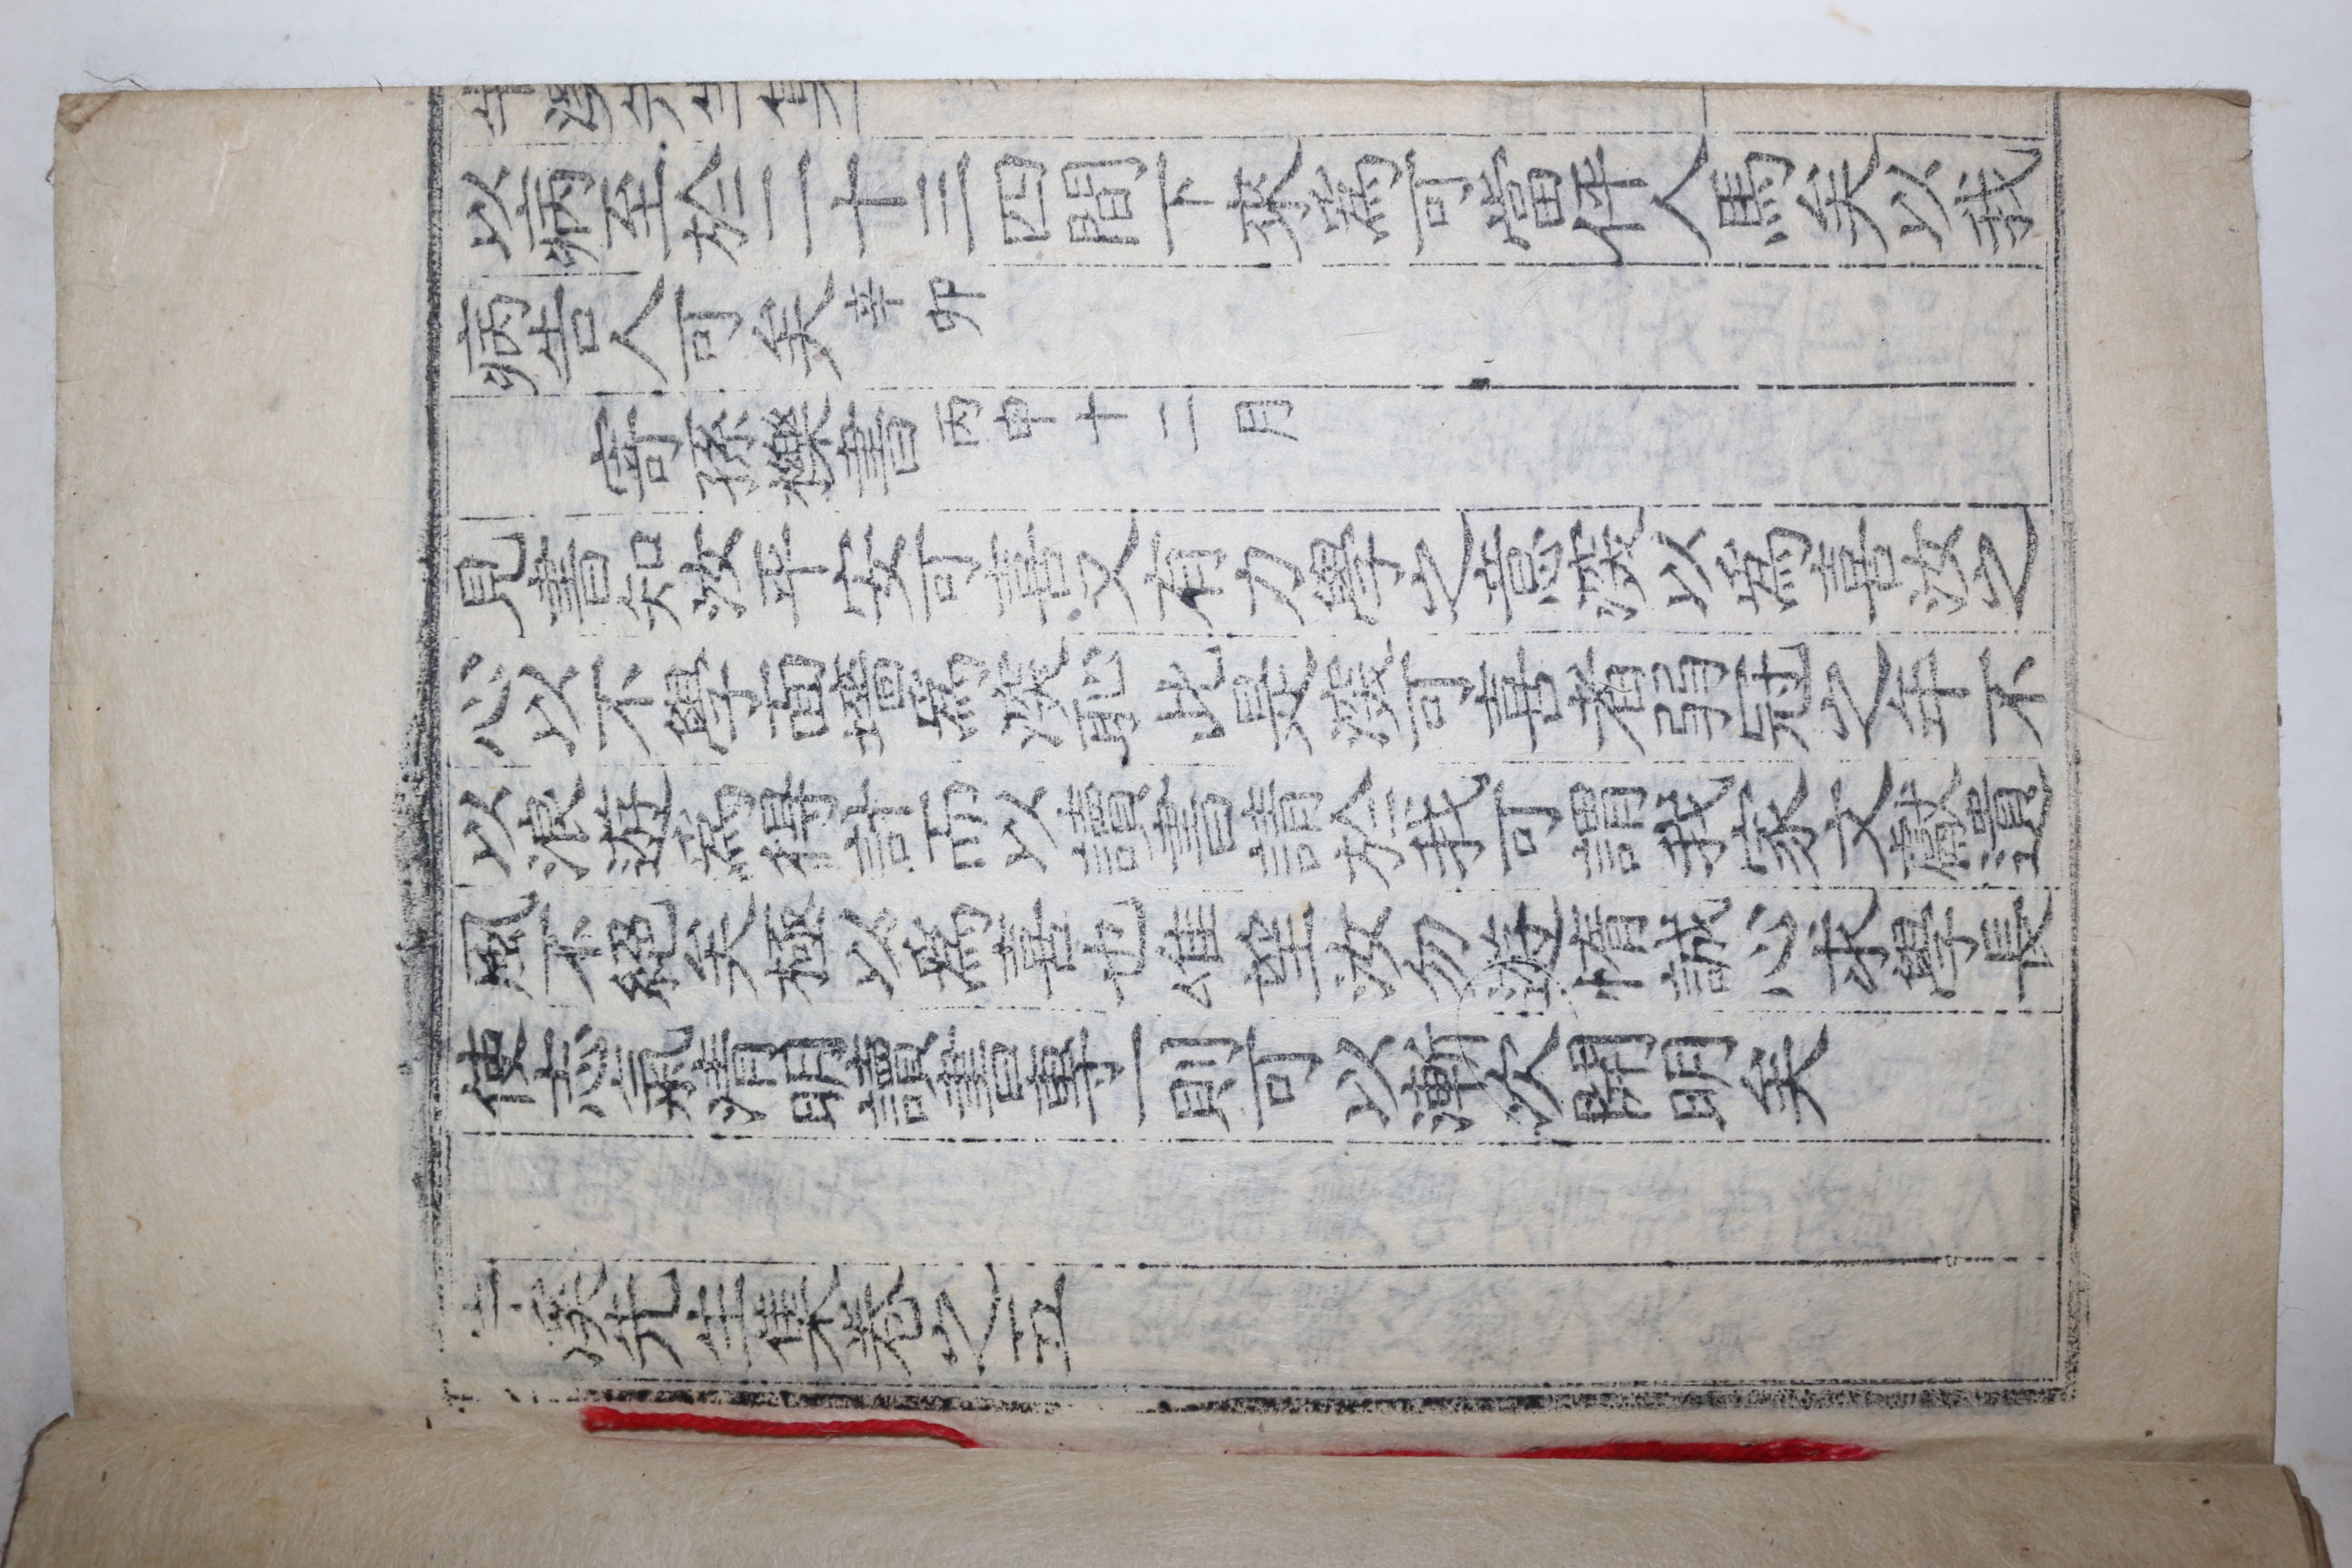 牛溪先生集
以病至於二十三四間下來爲可當伻人馬矣以我
病告人可矣辛卯
寄孫櫟書丙申十二月
見書知汝平安可喜又有力學之意深以爲喜汝之
心以不學面墻爲深恥此是深可喜者弱冠之年不
以浪遊爲得計而以讀書請於我可謂我家文獻遺
風不絕矣極以爲喜也唯望汝勿遊惰誠心求學長
使志氣淸明讀書專一則可以漸次開明矣
牛溪先生集卷之五